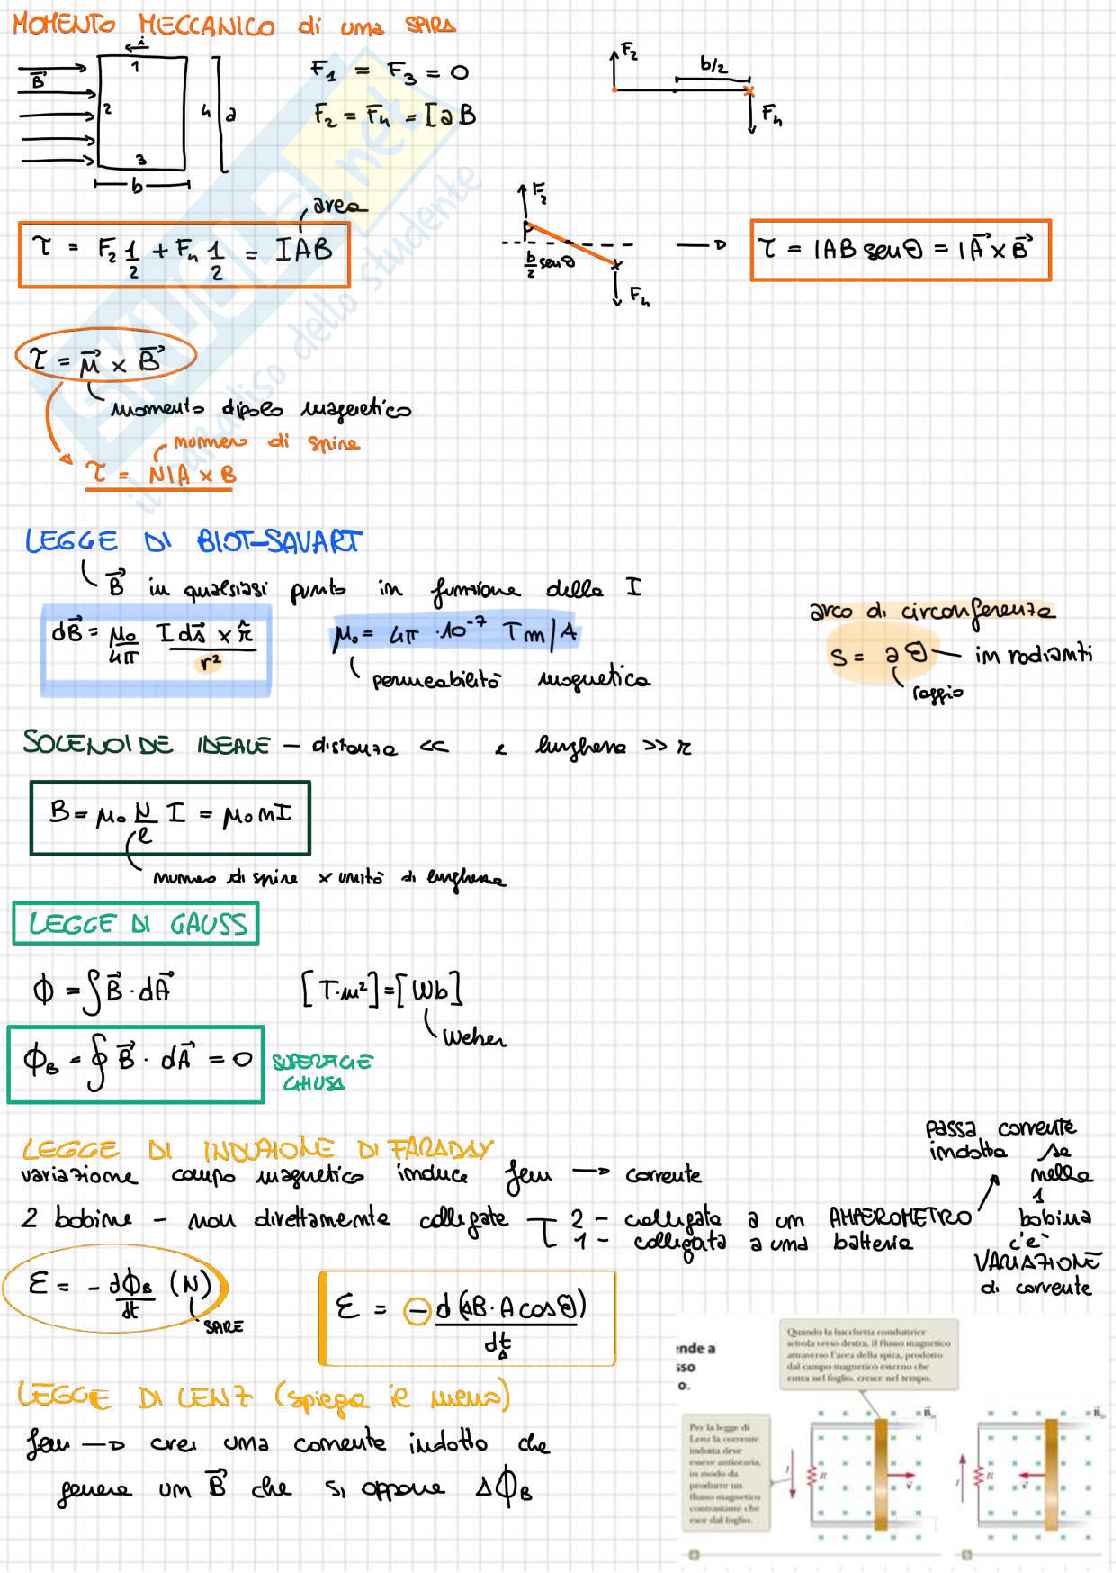 MOMENTO MECCANICO di una SPIRA
i
B
1
2
3
4
a
b
F1 = F3 = 0
F2 = F4 = IaB
F2
b/2
F4
area
τ = F2 1/2 + F4 1/2 = IAB
F2
b/2 senθ
F4
τ = IAB senθ = IA × B
τ = μ × B
momento dipolo magnetico
numero di spire
τ = NIA × B
LEGGE DI BIOT-SAVART
B in qualsiasi punto in funzione della I
dB = μ0/4π I ds × r̂ / r²
μ0 = 4π · 10⁻⁷ Tm/A
permeabilità magnetica
arco di circonferenza
S = aθ — in radianti
raggio
SOLENOIDE IDEALE – distanza << e lunghezza >> r
B = μ0 N/l I = μ0 n I
numero di spire x unità di lunghezza
LEGGE DI GAUSS
Φ = ∫ B · dA
[T·m²] = [Wb]
Weber
ΦB = ∮ B · dA = 0
SUPERFICIE
CHIUSA
LEGGE DI INDUZIONE DI FARADAY
variazione campo magnetico induce fem → corrente
2 bobine – non direttamente collegate
2 – collegata a un AMPEROMETRO
1 – collegata a una batteria
passa corrente
indotta se
nella
1
bobina
c'è
VARIAZIONE
di corrente
ε = - dΦB/dt (N)
SPIRE
ε = - d(B·A cosθ)/dt
LEGGE DI LENZ (spiega il meno)
fem → crei una corrente indotta che
genera un B che si oppone ΔΦB
nde a
sso
o.
Quando la bacchetta conduttrice
scivola verso destra, il flusso magnetico
attraverso l'area della spira, prodotto
dal campo magnetico esterno che
entra nel foglio, cresce nel tempo.
Per la legge di
Lenz la corrente
indotta deve
essere antioraria,
in modo da
produrre un
flusso magnetico
contrastante che
esce dal foglio.
I
R
v
B
I
R
v
B
SKUOLA.net
il paradiso dello studente